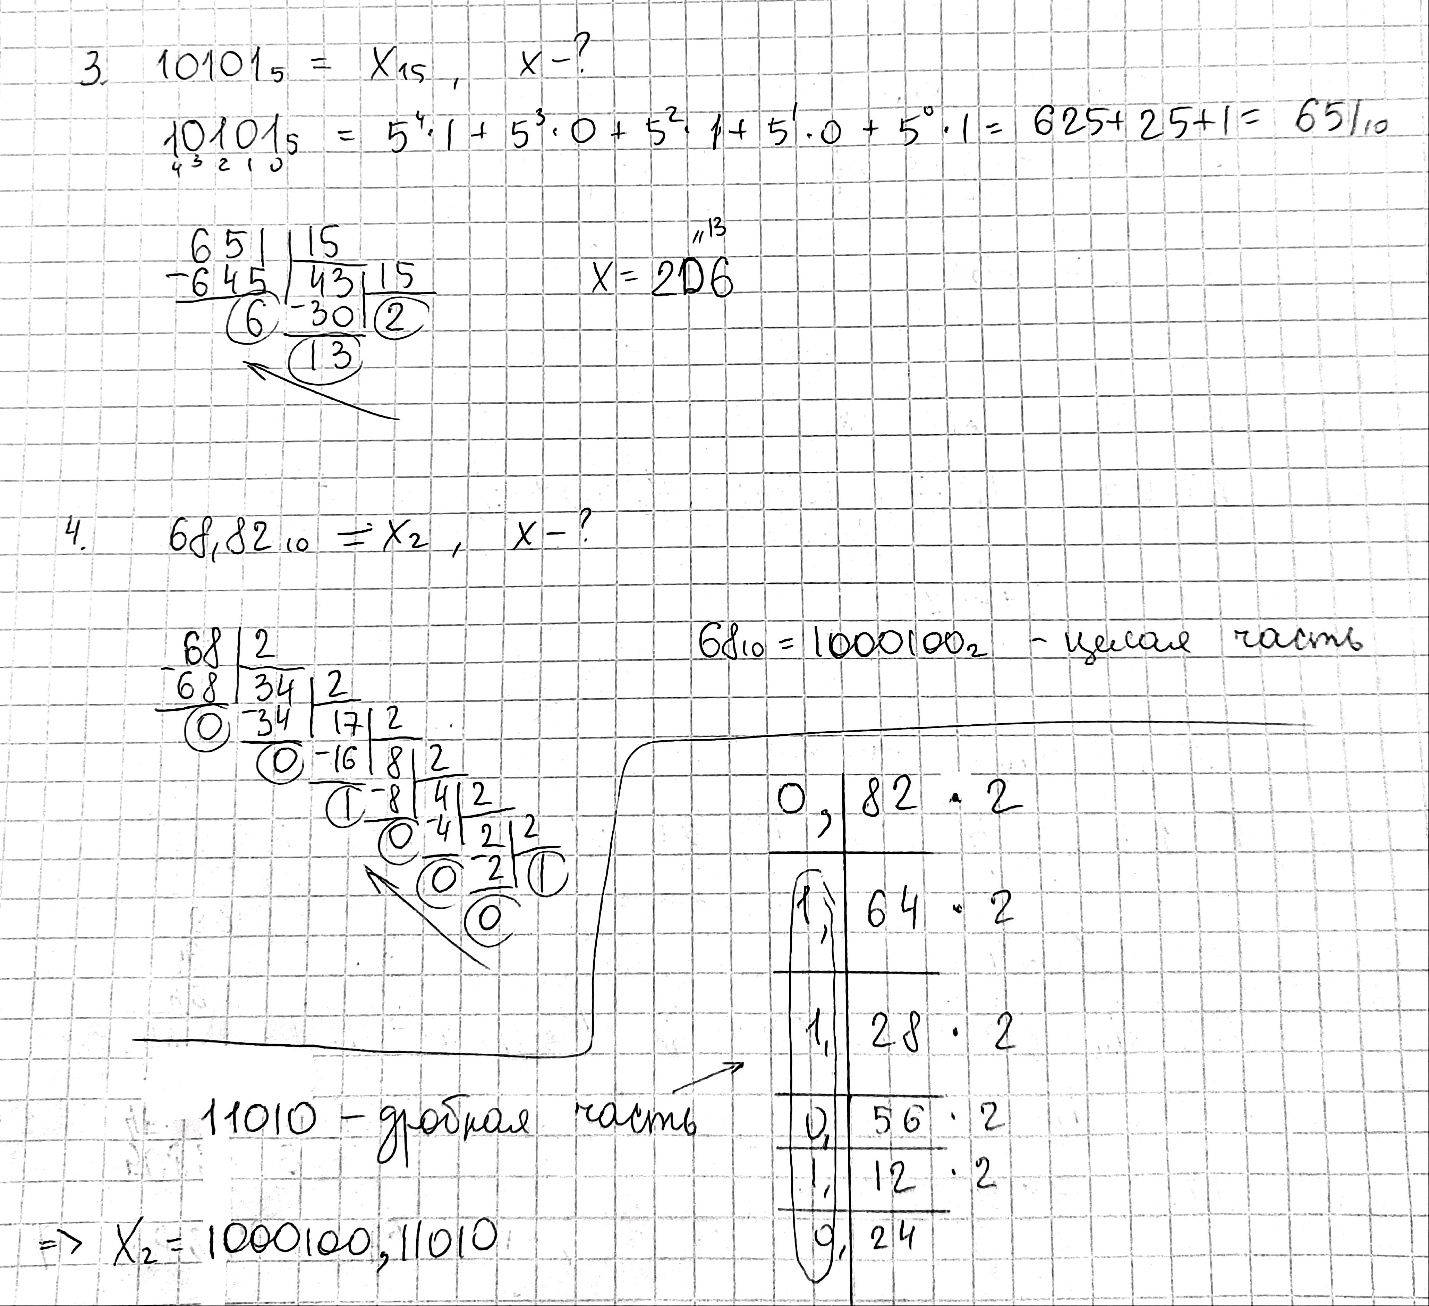 3. 10101₅ = X₁₅, x-?
10101₅ = 5⁴·1 + 5³·0 + 5²·1 + 5¹·0 + 5⁰·1 = 625+25+1 = 651₁₀
4 3 2 1 0
651 | 15
-645 | 43 | 15
6 -30 2
13
"13
X = 2D6
4. 68,82₁₀ = X₂, x-?
68 | 2
-68 | 34 | 2
0 -34 | 17 | 2
0 -16 | 8 | 2
1 -8 | 4 | 2
0 -4 | 2 | 2
0 -2 | 1
0
68₁₀ = 1000100₂ - целая часть
0, | 82 · 2
1, | 64 · 2
1, | 28 · 2
0, | 56 · 2
1, | 12 · 2
0, | 24
11010 - дробная часть
=> X₂ = 1000100,11010